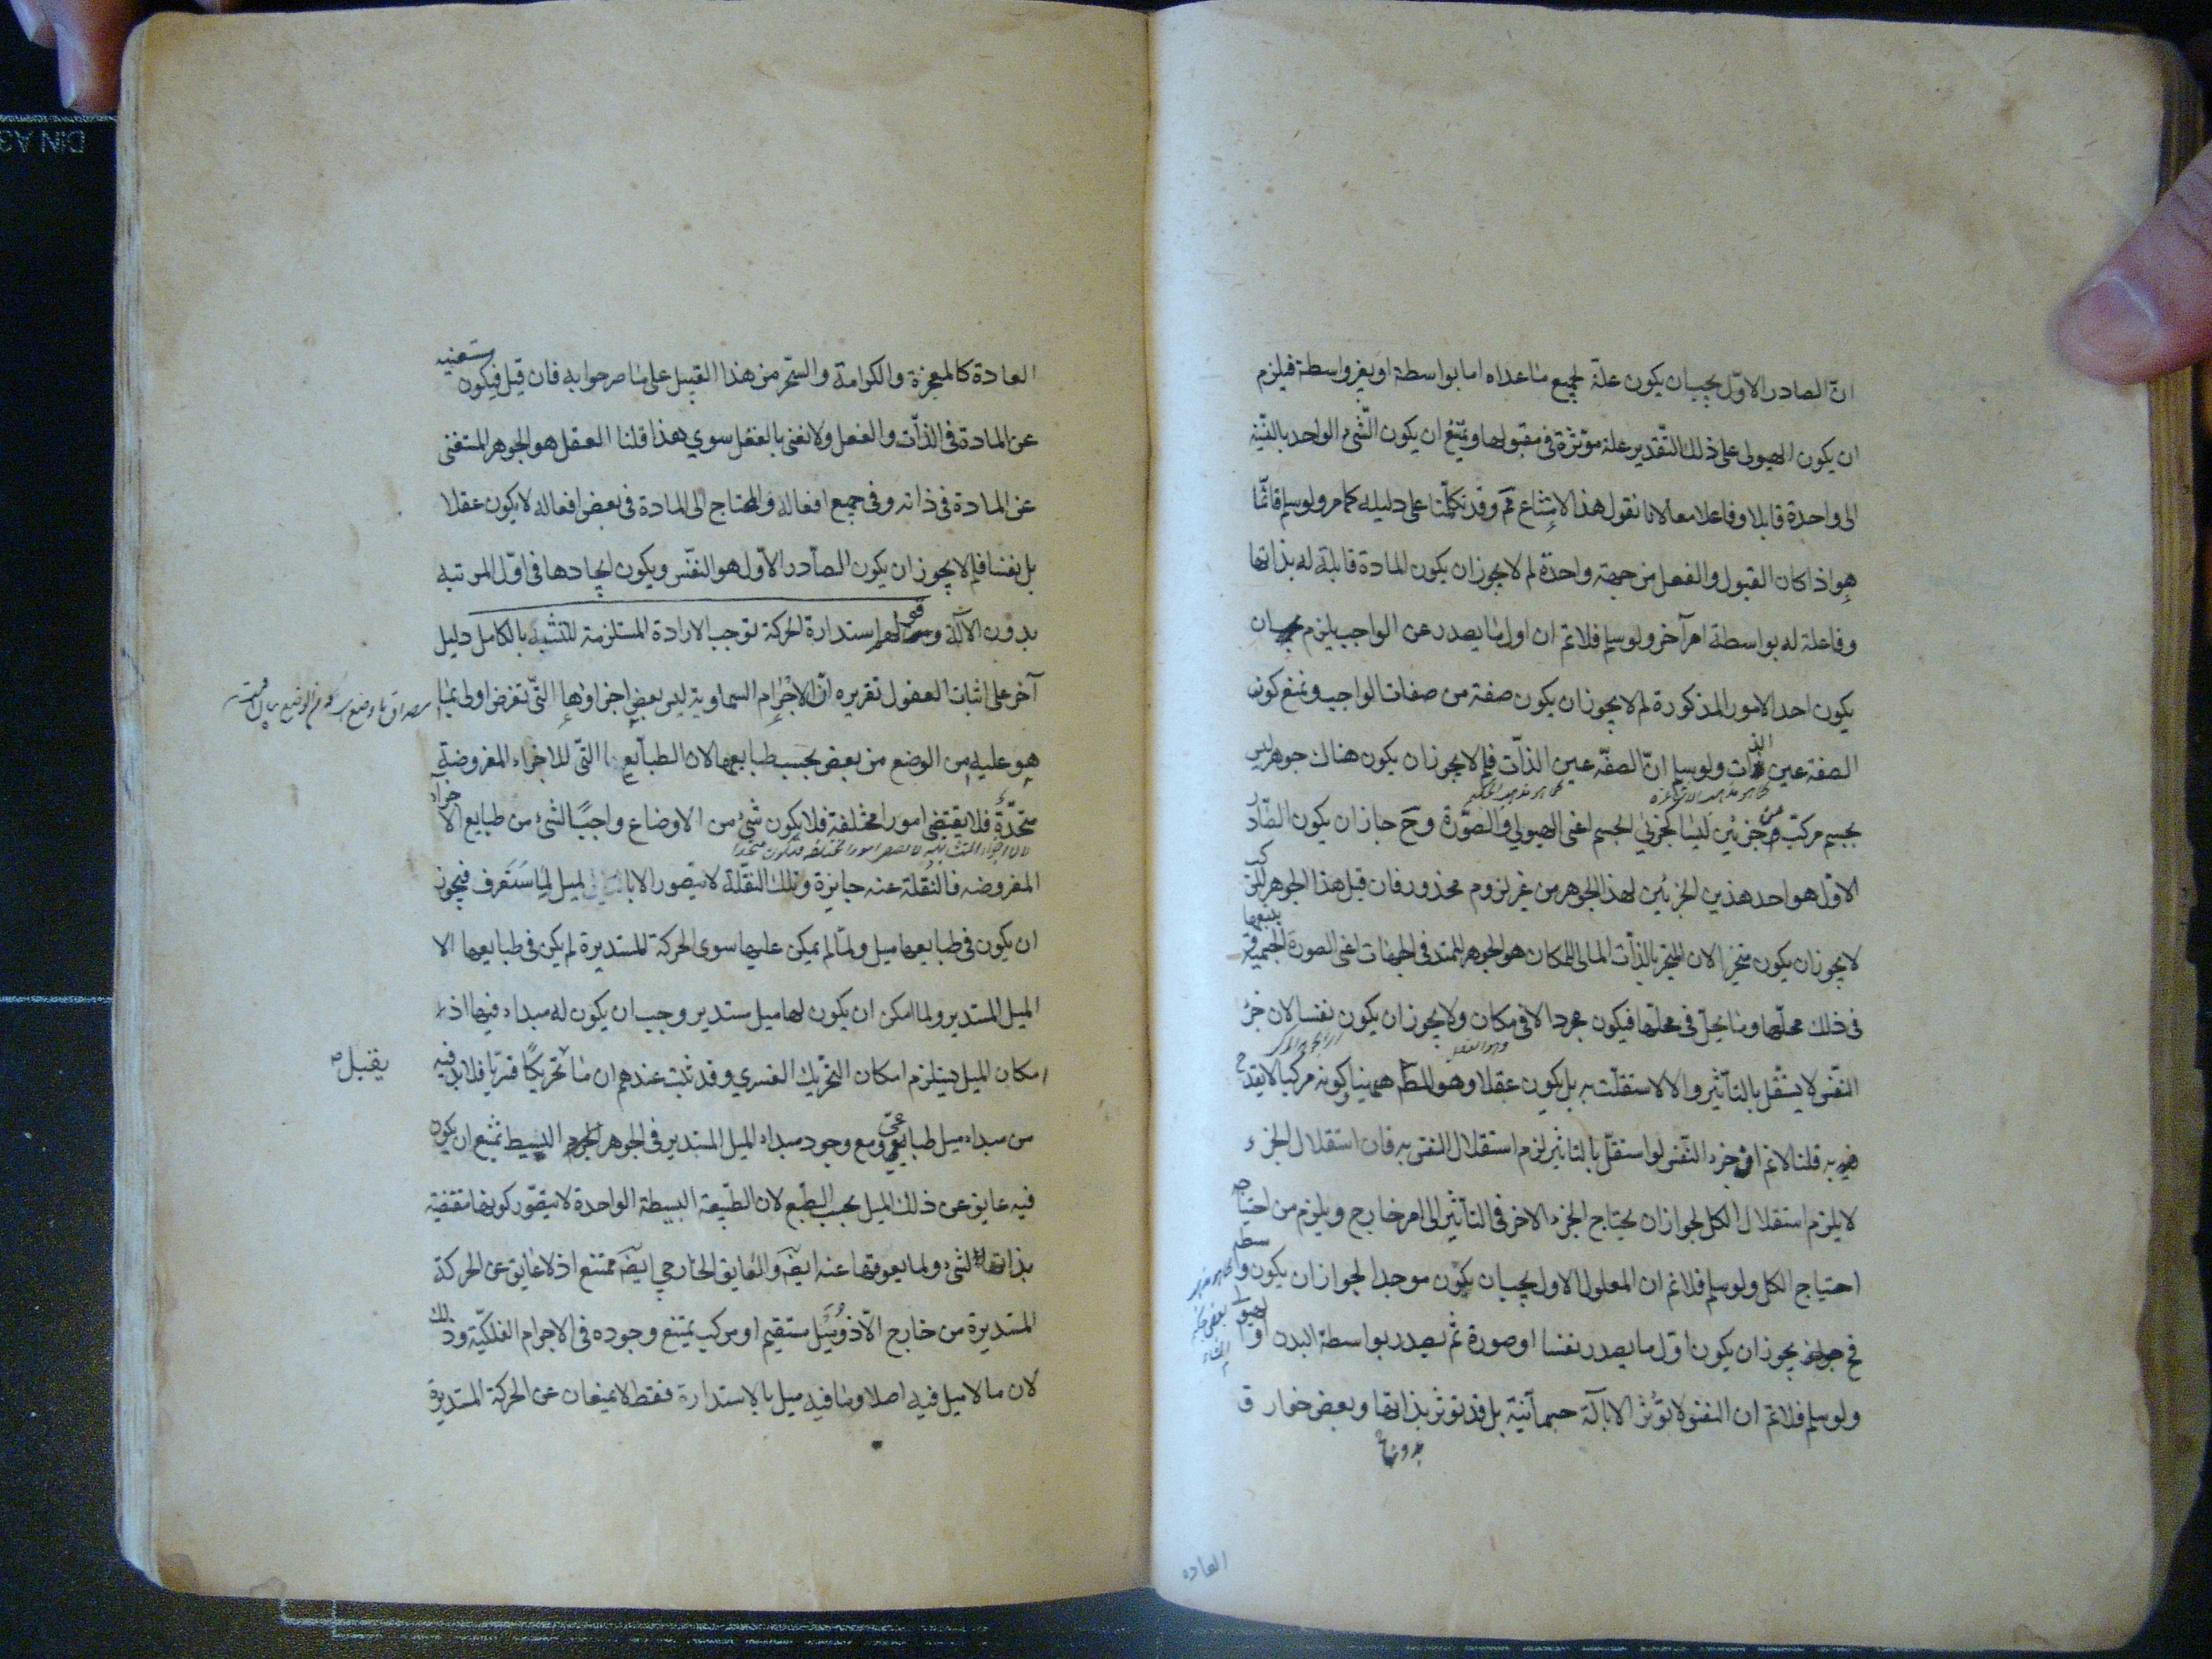 انّ الصادر الاوّل يجب ان يكون علة لجميع ما عداه اما بواسطة او بغير واسطة فيلزم
ان يكون الهيولى على ذلك التّقدير علة موثرة فى مقبولها ويمتنع ان يكون الشّئ الواحد بالنسبة
الى واحدة قابلا وفاعلا معا لانا نقول هذا الامتناع مم وقد تكلّمنا على دليله كما مر ولو سلم فانّما
هو اذا كان القبول والفعل من جهة واحدة لم لا يجوز ان يكون المادة قابلة له بذاتها
وفاعلة له بواسطة امر آخر ولو سلم فلا نم ان اول ما يصدر عن الواجب يلزم ان
يكون احد الامور المذكورة لم لا يجوز ان يكون صفة من صفات الواجب ونمنع كون
الصفة عين الذات ولو سلم انّ الصفّة عين الذّات فلم لا يجوز ان يكون هناك جوهر ليس
كما هو مذهب الاشاعرة كما هو مذهب الحكيم
بجسم مركب من جزئين ليسا كجزئي الجسم اعنى الهيولى والصّورة وح جاز ان يكون الصّادر
الاوّل هو احد هذين الجزئين لهذا الجوهر من غير لزوم محذور فان قيل هذا الجوهر المركب
لا يجوز ان يكون متحيزا لان المتحيّز بالذّات المالى للمكان هو الجوهر الممتد فى الجهات اعنى الصورة الجسمية يتبعها
فى ذلك محلّها وما يحلّ فى محلّها فيكون مجردا لا فى مكان ولا يجوز ان يكون نفسا لان جزء
وهو العقل
النّفس لا يستقّل بالتأثير والا لاستقلّت به بل يكون عقلا وهو المط ههينا وكونه مركبا لا يقدح
فيه قلنا لا نم ان جزء النّفس لو استقلّ بالتاثير لزم استقلال النفس به فان استقلال الجزء
لا يلزم استقلال الكل لجواز ان يحتاج الجزء الاخر فى التأثير الى امر خارج ويلزم من احتياجه
احتياج الكل ولو سلم فلا نم ان المعلول الاول يجب ان يكون موجدا لجواز ان يكون واسطه
فح يجوز ان يكون اوّل ما يصدر نفسا او صورة ثم يصدر بواسطة البدن او الهيولى
ولو سلم فلا نم ان النفس لا تؤثر الا بآلة جسمآنية بل قد توثر بذاتها وبعض خوارق
بدونها
العاده
العادة كالمعجزة والكرامة والسّحر من هذا القبيل على ما صرحوا به فان قيل فيكون مستغنيه
عن المادة فى الذّات والفعل ولا نعنى بالعقل سوى هذا قلنا العقل هو الجوهر المستغنى
عن المادة فى ذاته وفى جميع افعاله والمحتاج الى المادة فى بعض افعاله لا يكون عقلا
بل نفسا فلم لا يجوز ان يكون الصّادر الاوّل هو النفس ويكون ايجادها فى اوّل المرتبه
بدون الآلة استدارة الحركة توجب الارادة المستلزمة للتشبه بالكامل دليل
آخر على اثبات العقول تقريره انّ الاجرام السماوية ليس بعض اجزاوها التّى تفرض اولى بما
هو عليه من الوضع من بعض بحسب طبايعها لان الطبآيع التّى للاجزاء المفروضة
متحدّة فلا يقتضى امورا مختلفة فلا يكون شئ من الاوضاع واجبًا لشئ من طبايع الاجزاء
المفروضه فالنُقلة عنه جايزة وتلك النقلة لا تتصور الا بالميل لما ستعرف فيجوز
ان يكون فى طبايعها ميل ولمّا لم يمكن عليها سوى الحركة المستديرة لم يكن فى طبايعها الا
الميل المستدير ولما امكن ان يكون لها ميل مستدير وجب ان يكون له مبداء فيها اذ
امكان الميل يستلزم امكان التّحريك القسرى وقد ثبت عندهم ان ما تحريكًا قسريّا فلا بد فيه
يقبل صح
من مبداء ميل طباعى ومع وجود مبداء الميل المستدير فى الجوهر البسيط تمتنع ان يكون
فيه عايق عن ذلك الميل بحسب الطبع لان الطّبيعة البسيطة الواحدة لا يتصّور كونها مقتضية
بذاتها لشئ ولما يعوقها عنه ايضَا والعَايق الخارجى ايضَا ممتنع اذ لا عايق عن الحركة
المستديرة من خارج الاّ ذو ميَل مستقيم او مركب يمتنع وجوده فى الاجرام الفلكيّة وذلك
لان ما لا ميل فيه اصلا وما فيه ميل بالاستدارة فقط لا يمنعان عن الحركة المستديرة